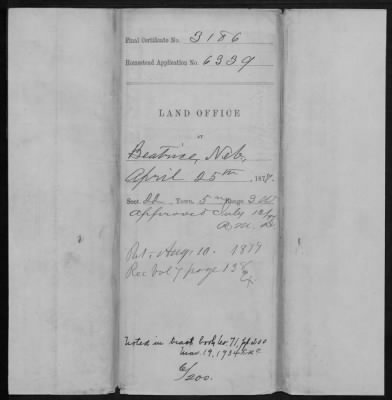 Final Certificate No. 3186
Homestead Application No. 6339
LAND OFFICE
AT
Beatrice, Neb,
April 25th, 1878.
Sect. 22 Town. 5 n Range 3 W
Approved July
Pat. Aug. 10. 1879
Rec Vol 7 page
Noted in tract book Vol. 71, pp 200
Mar. 19, 1934